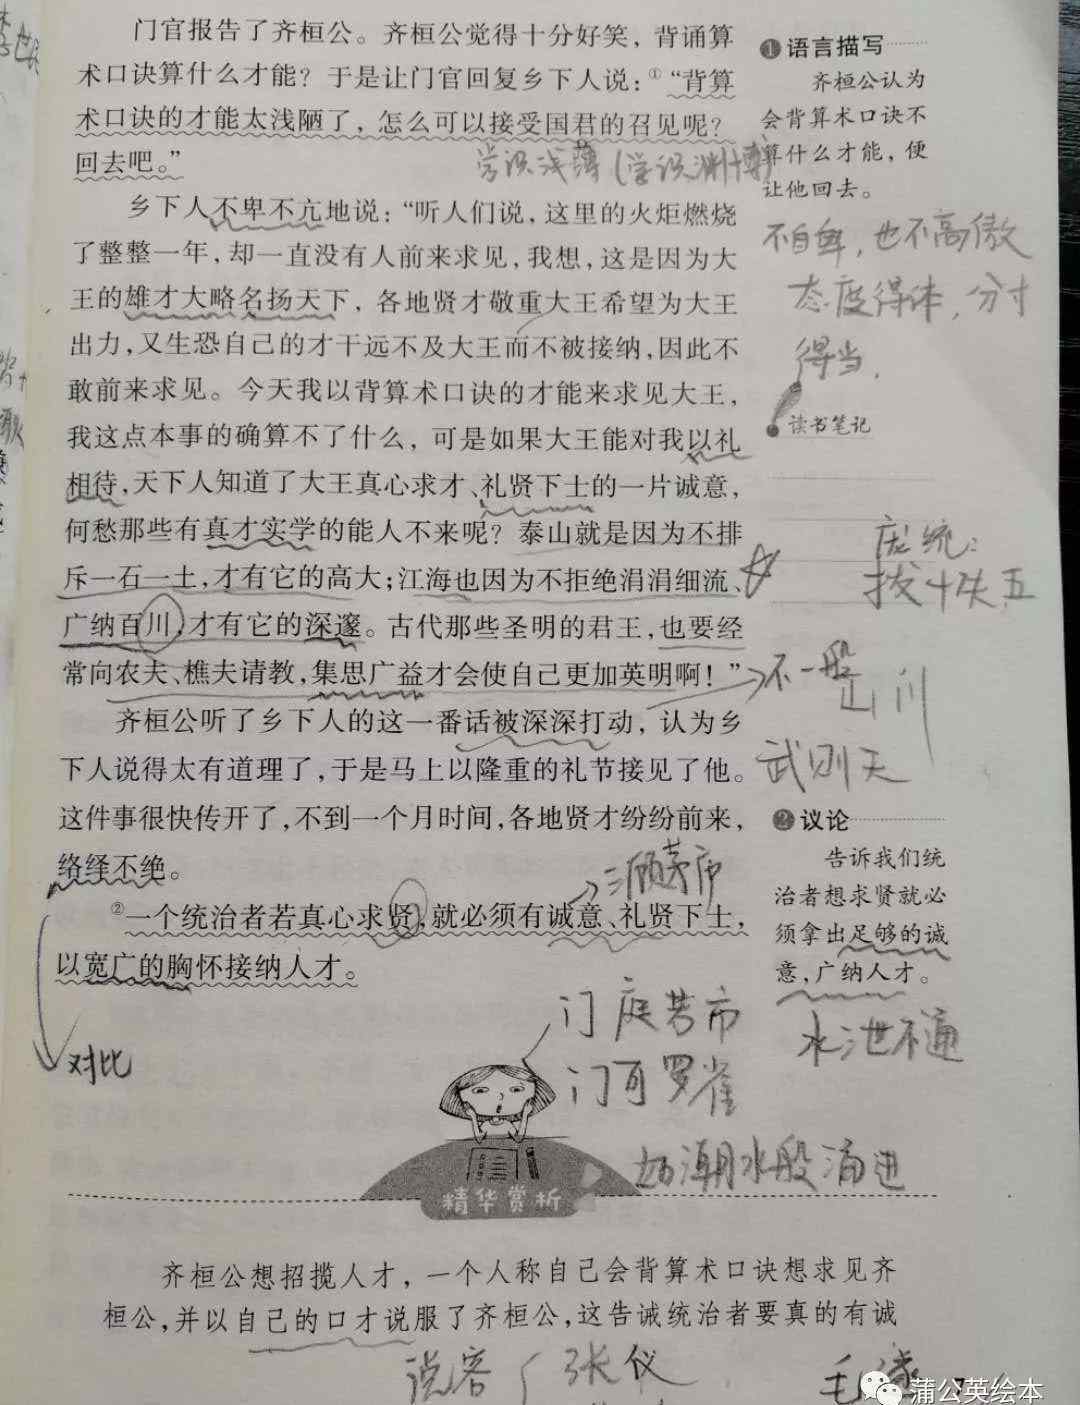 门官报告了齐桓公。齐桓公觉得十分好笑，背诵算
术口诀算什么才能？于是让门官回复乡下人说：①“背算
术口诀的才能太浅陋了，怎么可以接受国君的召见呢？
回去吧。”
学识浅薄（学识渊博）
乡下人不卑不亢地说：“听人们说，这里的火炬燃烧
了整整一年，却一直没有人前来求见，我想，这是因为大
王的雄才大略名扬天下，各地贤才敬重大王希望为大王
出力，又生恐自己的才干远不及大王而不被接纳，因此不
敢前来求见。今天我以背算术口诀的才能来求见大王，
我这点本事的确算不了什么，可是如果大王能对我以礼
相待，天下人知道了大王真心求才、礼贤下士的一片诚意，
何愁那些有真才实学的能人不来呢？泰山就是因为不排
斥一石一土，才有它的高大；江海也因为不拒绝涓涓细流、
广纳百川，才有它的深邃。古代那些圣明的君王，也要经
常向农夫、樵夫请教，集思广益才会使自己更加英明啊！”
齐桓公听了乡下人的这一番话被深深打动，认为乡
下人说得太有道理了，于是马上以隆重的礼节接见了他。
这件事很快传开了，不到一个月时间，各地贤才纷纷前来，
络绎不绝。
三顾茅庐
②一个统治者若真心求贤，就必须有诚意、礼贤下士，
以宽广的胸怀接纳人才。
对比
❶语言描写
齐桓公认为
会背算术口诀不
算什么才能，便
让他回去。
不自卑，也不高傲
态度得体，分寸
得当.
读书笔记
庞统：
拔十失五
不一般
山川
武则天
❷议论
告诉我们统
治者想求贤就必
须拿出足够的诚
意，广纳人才。
水泄不通
门庭若市
门可罗雀
如潮水般涌进
精华赏析
齐桓公想招揽人才，一个人称自己会背算术口诀想求见齐
桓公，并以自己的口才说服了齐桓公，这告诫统治者要真的有诚
说客 张仪
毛遂
7
蒲公英绘本